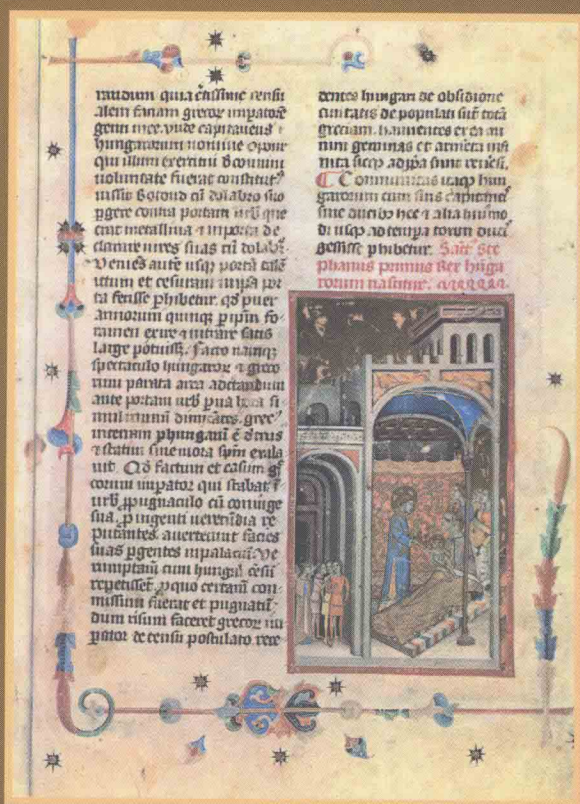 randum quia cũssime censu
alem faciam grecor impatorē
genti mee. vnde capitaneus
hungarorum nomine opour
qui illum exercitui d comuni
voluntate fuerat constitut⁹
iussit Botond cũ dolabro suo
pgere contra portam urb que
erat metallina
claraue vires suas cũ dolab
Venies aute usq portā
utum et cesuram
ta fecisse phibetur. qđ puer
annorum quinq p ipm fo
ramen exire ⁊ intrare satis
large potuiss. Facto namq
spectaculo hungaror ⁊ greco
rum parata area ad certandum
ante portam urb p una hora si
mul
interim p hungarū ē
⁊ statim sine mora spm exala
uit. Qđ factum et casum g
corum impator qui stabat ĩ
urb ppugnaculo cũ coniuge
sua. p ingenti uerecūdia re
putantes auerterunt facies
suas pgentes in palaciũ. Ve
rumptam cum
repetisset. p quo certam com
missum fuerat et pugnatũ.
dum risum faceret grecor im
pator de censu postulato rece
dentes hungari de obsidione
ciuitatis depopulati sūt totā
greciam.
geminas et armēta infi
nita sicq ad ppa sunt reuersi.
Communitas itaq hun
garorum cum suis capitaneis
sine ducib hec ⁊ alia
di usq ad tempa
gessisse phibetur. Sāct Ste
phanus primus Rex hūga
rorum nascitur.